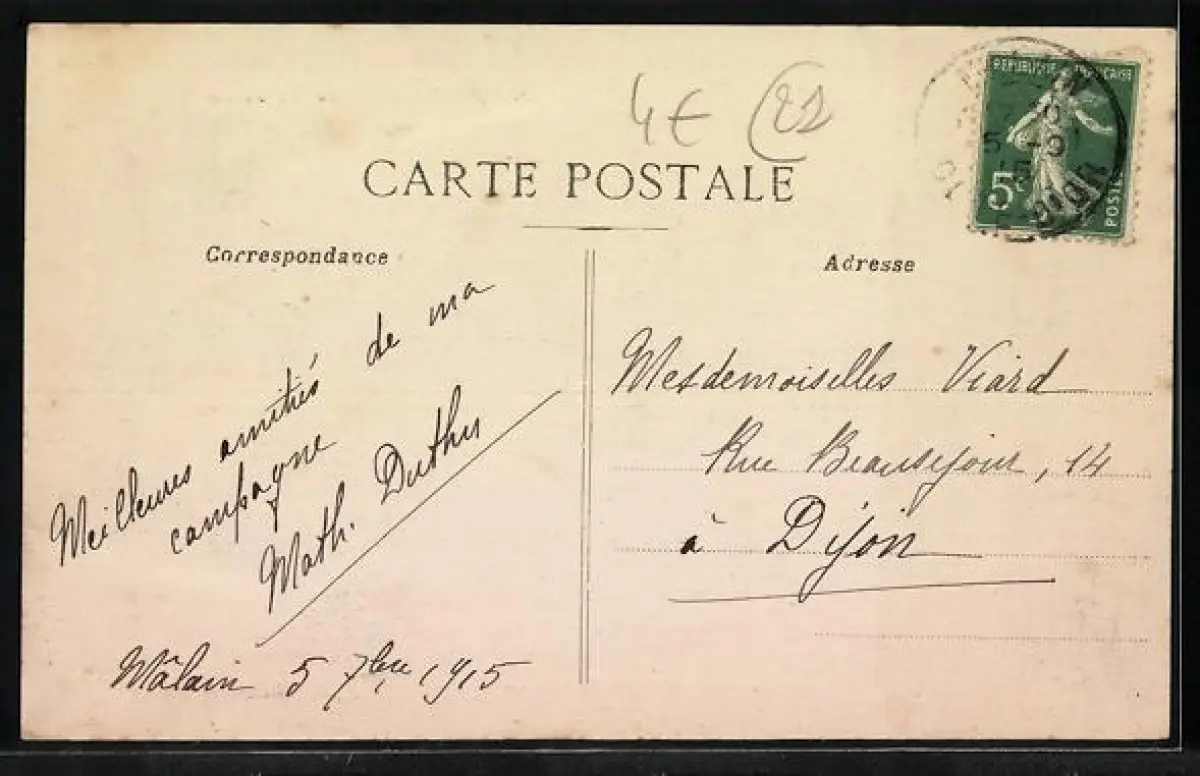 4€ (21
CARTE POSTALE
Correspondance
Adresse
RÉPUBLIQUE FRANÇAISE
5c
POSTES
DIJON
5 -9
Meilleures amitiés de ma
campagne
Math. Duthu
Mâlain 5 7bre 1915
Mesdemoiselles Viard
Rue Beauséjour, 14
à Dijon